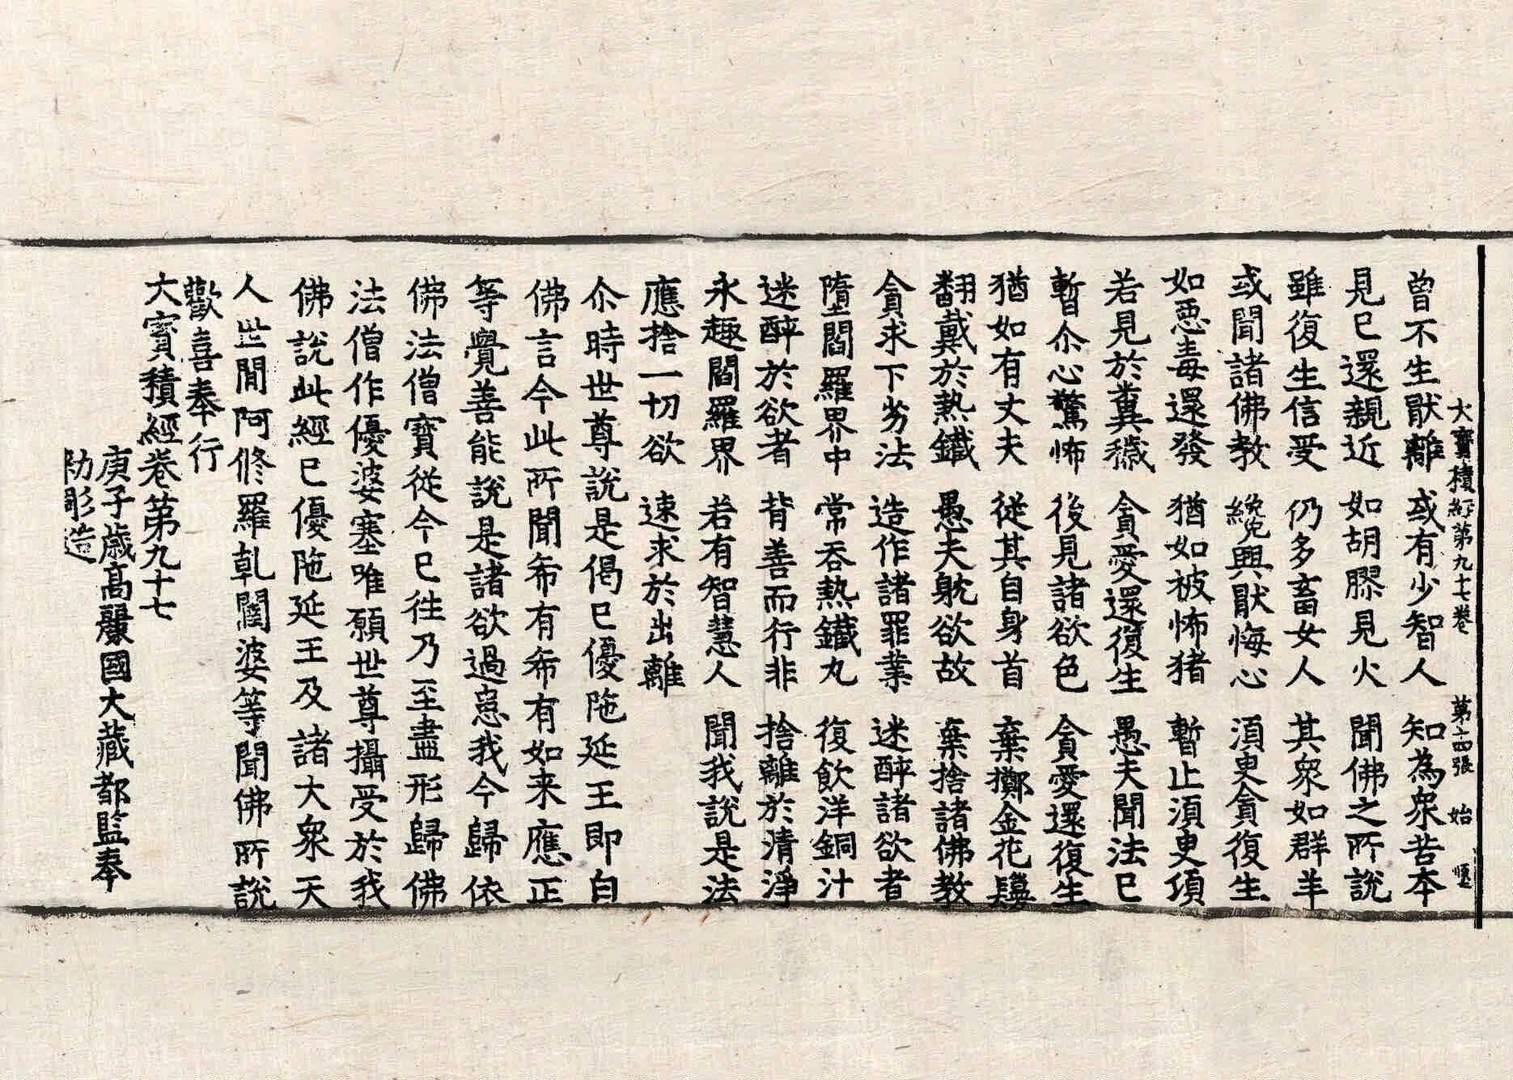 大寶積經第九十七卷 第十四張 始
曾不生猒離 或有少智人 知為衆苦本
見已還親近 如胡膠見火 聞佛之所說
雖復生信受 仍多畜女人 其衆如群羊
或聞諸佛教 纔興猒悔心 須臾貪復生
如惡毒還發 猶如被怖猪 暫止須臾頃
若見於糞穢 貪愛還復生 愚夫聞法已
暫尒心驚怖 後見諸欲色 貪愛還復生
猶如有丈夫 從其自身首 棄擲金花鬘
翻戴於熱鐵 愚夫躭欲故 棄捨諸佛教
貪求下劣法 造作諸罪業 迷醉諸欲者
墮閻羅界中 常吞熱鐵丸 復飲洋銅汁
迷醉於欲者 背善而行非 捨離於清淨
永趣閻羅界 若有智慧人 聞我說是法
應捨一切欲 速求於出離
尒時世尊說是偈已優陁延王即白
佛言今此所聞希有希有如来應正
等覺善能說是諸欲過患我今歸依
佛法僧寶從今已往乃至盡形歸佛
法僧作優婆塞唯願世尊攝受於我
佛說此經已優陁延王及諸大衆天
人世間阿脩羅乹闥婆等聞佛所說
歡喜奉行
大寶積經卷第九十七
庚子歲高麗國大藏都監奉
勑彫造